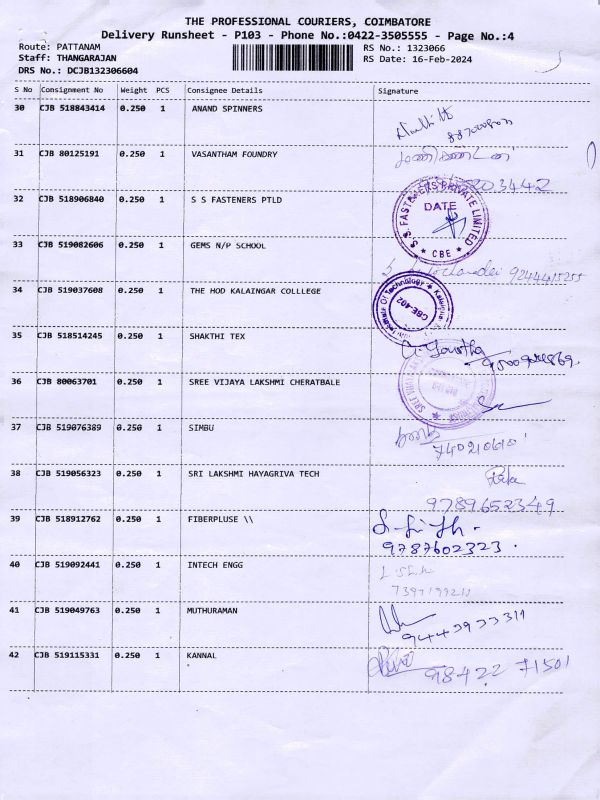 THE PROFESSIONAL COURIERS, COIMBATORE
Delivery Runsheet - P103 - Phone No.:0422-3505555 - Page No.:4
Route: PATTANAM RS No.: 1323066
Staff: THANGARAJAN RS Date: 16-Feb-2024
DRS No.: DCJB132306604
S No Consignment No Weight PCS Consignee Details Signature
30 CJB 518843414 0.250 1 ANAND SPINNERS
31 CJB 80125191 0.250 1 VASANTHAM FOUNDRY
32 CJB 518906840 0.250 1 S S FASTENERS PTLD
S.S. FASTENERS PRIVATE LIMITED
DATE
* CBE *
33 CJB 519082606 0.250 1 GEMS N/P SCHOOL
9244415255
34 CJB 519037608 0.250 1 THE HOD KALAINGAR COLLLEGE
Institute Of Technology * Kalaignar
CBE-402
35 CJB 518514245 0.250 1 SHAKTHI TEX
36 CJB 80063701 0.250 1 SREE VIJAYA LAKSHMI CHERATBALE
37 CJB 519076389 0.250 1 SIMBU
38 CJB 519056323 0.250 1 SRI LAKSHMI HAYAGRIVA TECH
9789652349
39 CJB 518912762 0.250 1 FIBERPLUSE \\
9787602323.
40 CJB 519092441 0.250 1 INTECH ENGG
41 CJB 519049763 0.250 1 MUTHURAMAN
9443933311
42 CJB 519115331 0.250 1 KANNAL
98422 71501